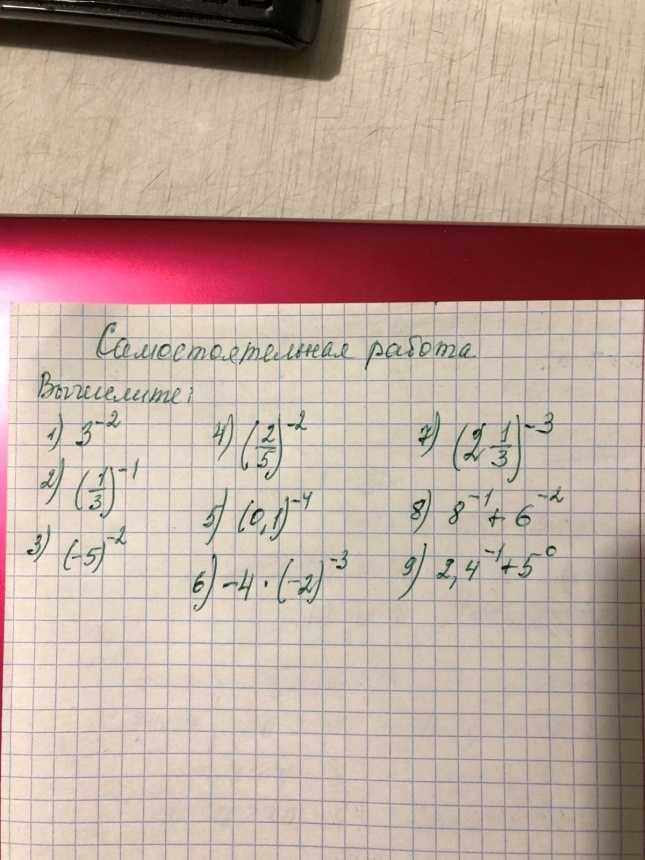 Самостоятельная работа.
Вычислите:
1) 3⁻²
2) (1/3)⁻¹
3) (-5)⁻²
4) (2/5)⁻²
5) (0,1)⁻⁴
6) -4 · (-2)⁻³
7) (2 1/3)⁻³
8) 8⁻¹ + 6⁻²
9) 2,4⁻¹ + 5⁰